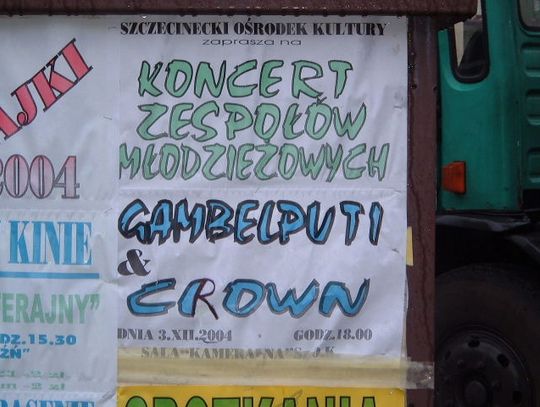 SZCZECINECKI OŚRODEK KULTURY
zaprasza na
KONCERT
ZESPOŁÓW
MŁODZIEŻOWYCH
GAMBELPUTI
&
CROWN
DNIA 3.XII.2004 · GODZ.18.00
SALA "KAMERALNA"
AJKI
2004
KINIE
ERAJNY"
DZ.15.30
SPOTKANIA